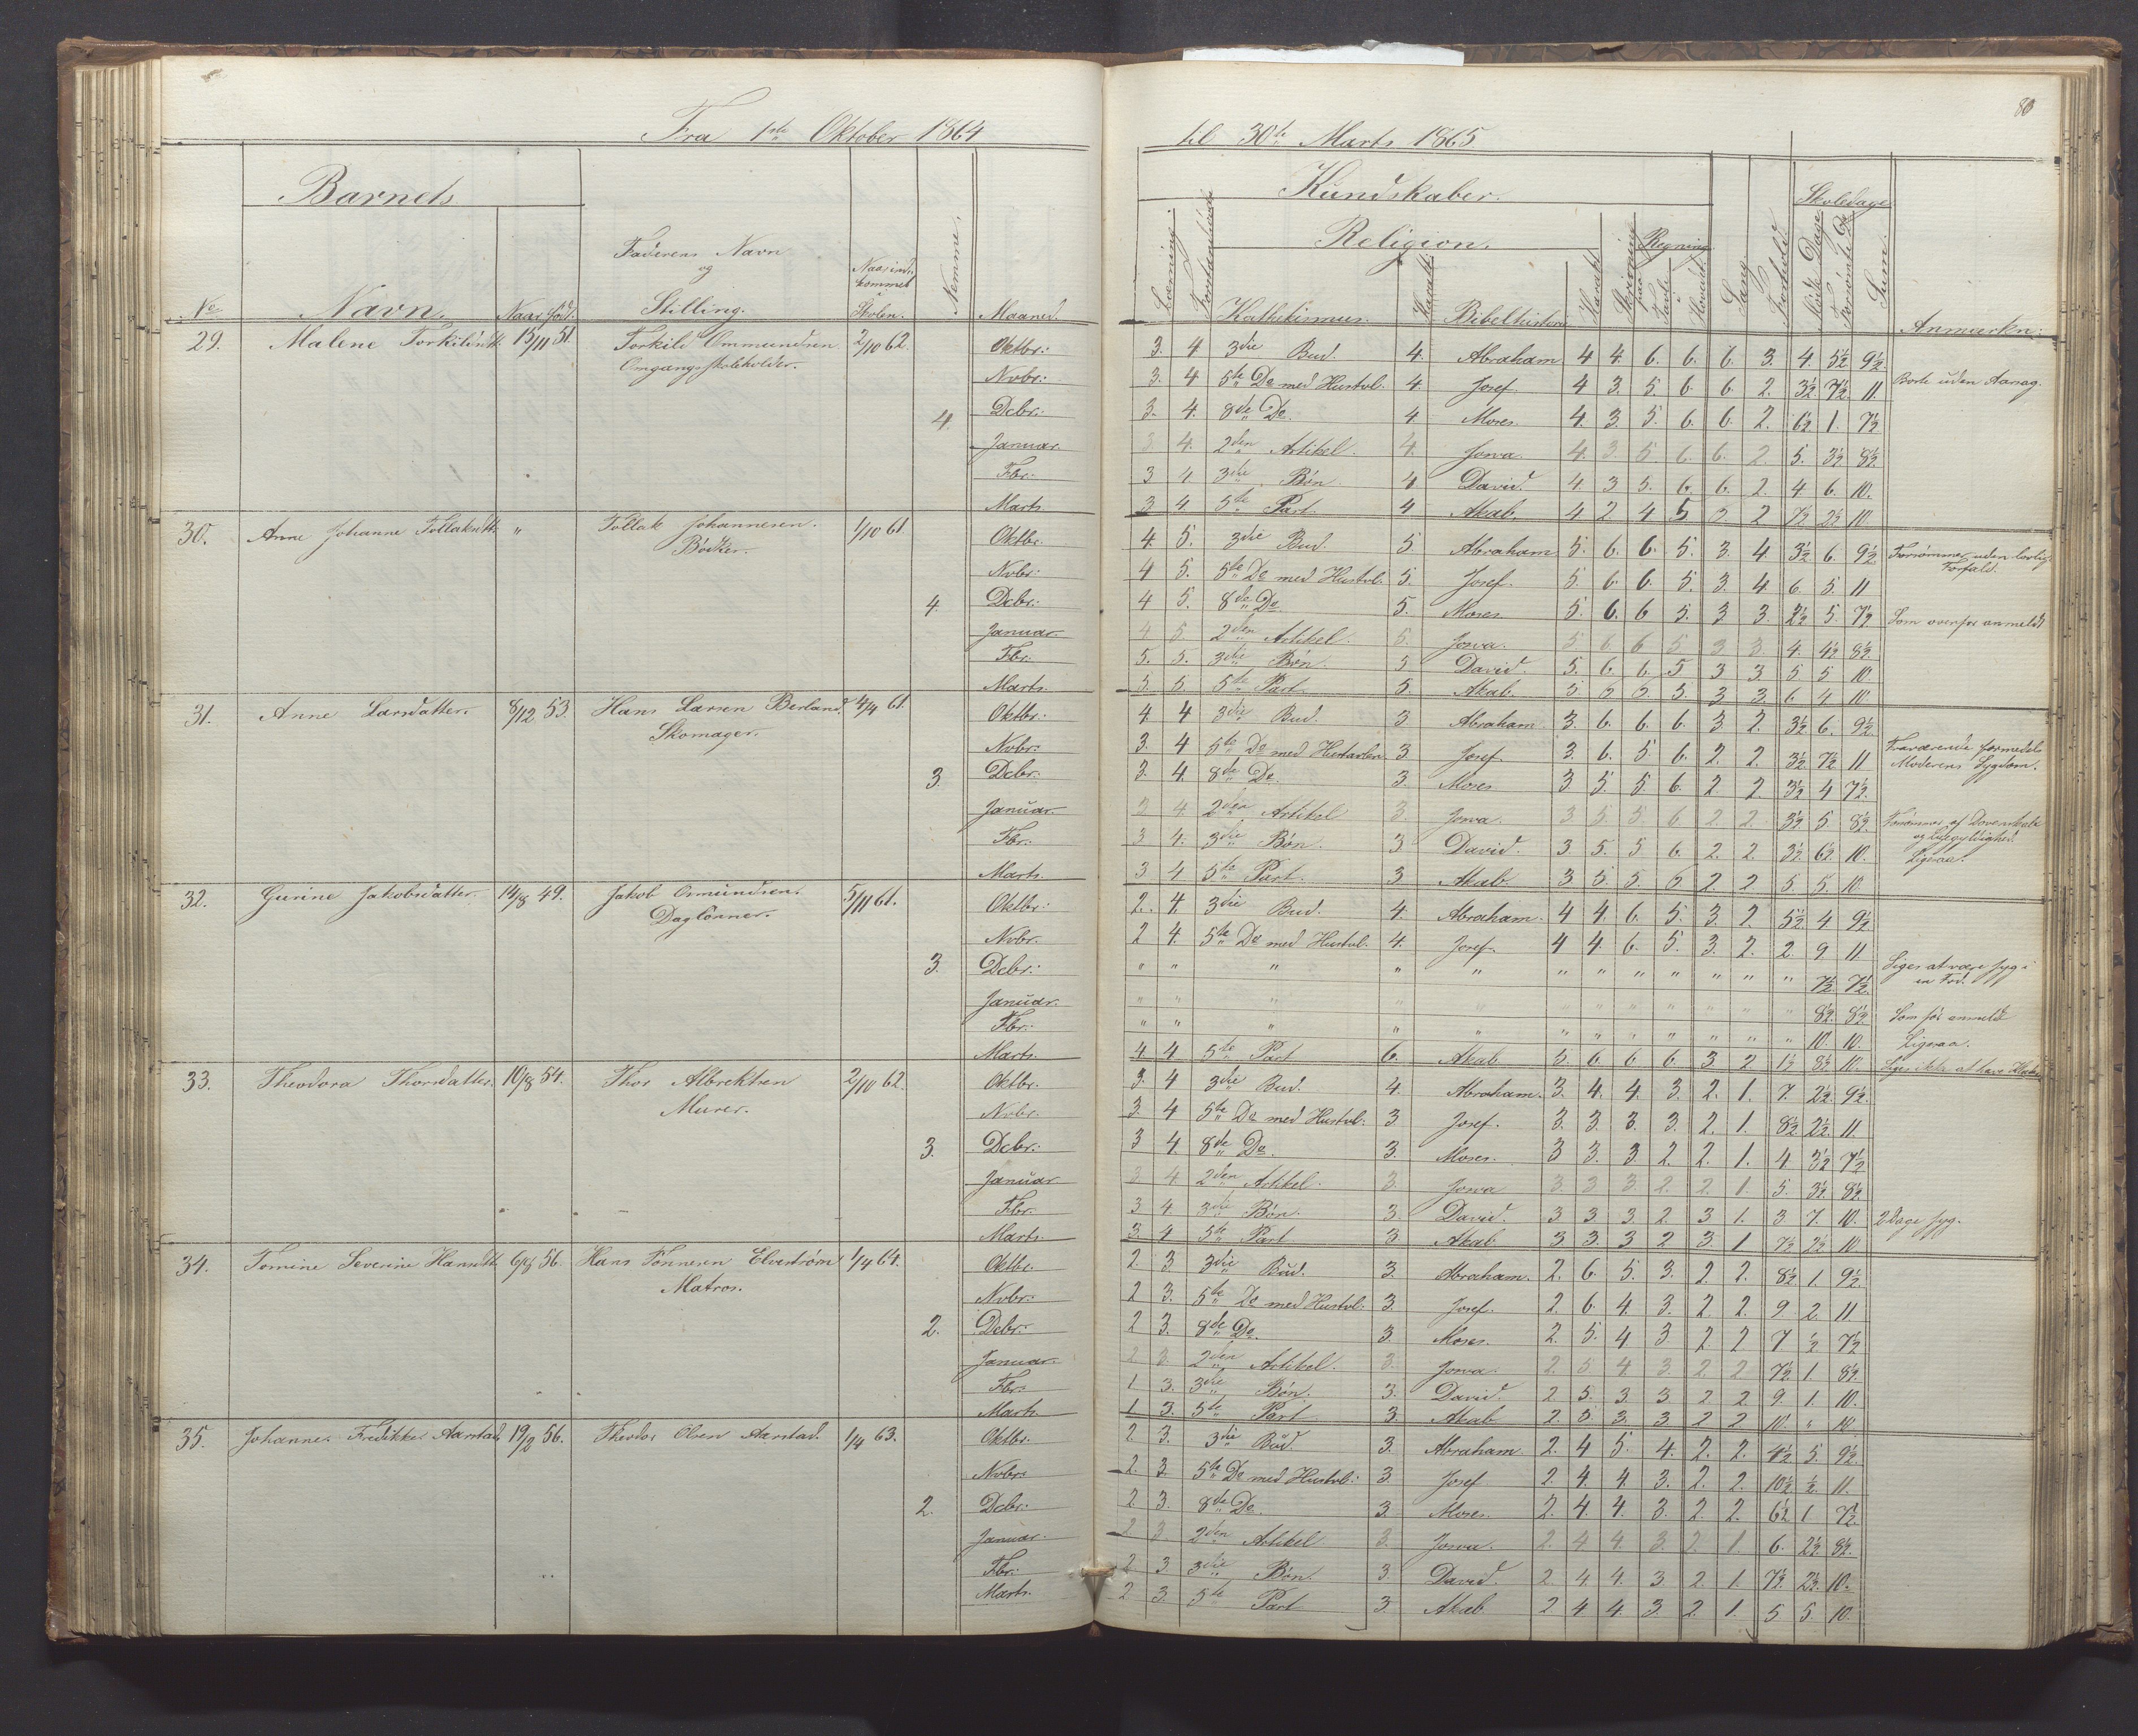 80
Fra 1ste Oktober 1864 til 30te Marts 1865
Barnets
Kundskaber.
Skoledage
Religion.
Regning
No Navn. Naar født. Faderens Navn og Stilling. Naar indkommet i Skolen. Nemme. Maaned. Læsning. Kathekismus. Bibelhistorie Skrivning Tavle Hovedet Sang Forhold Mødte Dage Forsømte Do Sum. Anmærkn:
29. Malene Torkildsdtt. 15/11 51. Torkild Ommundsen 2/10 62. Oktbr: 3. 4 3die Bud. 4. Abraham 4 4. 6. 6. 6. 3. 4. 5½ 9½
Omgangsskoleholder. Nvbr: 3. 4 5te Do med Hustvl. 4. Josef 4 3. 5. 6 6. 2. 3½ 7½ 11. Borte uden Aarsag.
4. Debr: 3. 4. 8de Do. 4. Moses 4. 3. 5. 6 6. 2. 6½ 1. 7½
Januar. 3 4. 2den Artikel. 4. Josva. 4. 3. 5. 6. 6. 2 5. 3½ 8½
Fbr. 3 4 3die Bøn 4 David. 4. 3 5. 6. 6. 2. 4 6. 10.
Marts. 3 4 5te Part. 4 Akab. 4 2 4 5 2 7½ 2½ 10
30. Anne Johanne Tollaksdtt. " Tollak Johannesen. 1/10 61. Oktbr. 4. 5. 3die Bud. 5. Abraham 5. 6. 6. 5. 3. 4. 3½ 6. 9½ Forsømmer uden lovlig
Bødker. Nvbr: 4 5. 5te Do med Hustvl. 5. Josef. 5. 6. 6. 5. 3. 4 6. 5. 11 Forfald.
4. Debr: 4 5. 8de Do. 5. Moses 5. 6. 6 5. 3 3. 2½ 5. 7½ Som ovenfor anmeldt
Januar. 4 5. 2den Artikel. 5. Josva. 5 6. 6 5 3 3. 4. 4½ 8½
Fbr. 5. 5. 3die Bøn. 5 David. 5. 6. 6. 5 3 3 5 5 10
Marts. 5. 5. 5te Part. 5. Akab. 3 3. 6 4 10.
31. Anne Larsdatter. 8/12 53. Hans Larsen Berland. 4/4 61. Oktbr: 4. 4 3die Bud. 3 Abraham. 3. 6. 6. 6. 3 2. 3½ 6. 9½
Skomager. Nvbr: 3. 4 5te Do med Hustavlen 3. Josef. 3 6. 5. 6. 2. 2. 3½ 7½ 11 Fraværende formedelst
3. Debr: 3. 4. 8de Do. 3. Moses 3 5. 5. 6. 2 2. 3½ 4 7½. Moderens Sygdom.
Januar. 3 4. 2den Artikel 3. Josva. 3 5 5 6 2 2. 3½ 5. 8½ Forsømmer af Dovenskab
Fbr. 3 4. 3die Bøn. 3 David. 3 5. 5 6. 2. 2. 3½ 6½ 10. og Ligegyldighed.
Marts. 3 4 5te Part. 3. Akab. 3 5 5. 2. 2 5. 5. 10. Ligesaa.
32. Gurine Jakobsdatter. 14/8 49. Jakob Osmundsen. 5/11 61. Oktbr: 2. 4. 3die Bud. 4. Abraham. 4 4. 6. 5. 3. 2. 5½ 4. 9½
Daglønner. Nvbr. 2 4. 5te Do med Hustvl. 4. Josef. 4 4. 6. 5. 3. 2. 2. 9 11
3. Debr: " " " " " " " " " " " " 7½ 7½ Siges at være syg i
Januar. " " " " " " " " " " " " 8½ 8½ en Fod.
Fbr: " " " " " " " " " " " " 10. 10. Som før anmeldt
Marts. 4 4. 5te Part 6. Akab 5. 6 6 6. 3 2 1½ 8½ 10. Ligesaa.
33. Theodora Thorsdatter. 10/8 54. Thor Albrektsen 2/10 62. Oktbr. 3. 4 3die Bud. 4. Abraham. 3. 4. 4. 3. 2. 1. 7. 2½ 9½
Murer. Nvbr. 3. 4 5te Do med Hustvl: 3 Josef. 3. 3. 3 3 2. 1. 8½ 2½ 11.
3. Debr: 3 4. 8de Do. 3. Moses. 3 3. 3 2. 2. 1. 4 3½ 7½
Januar 3 4 2den Artikel. 3. Josva 3. 3 3. 2. 2 1. 5. 3½ 8½
Fbr. 3 4. 3die Bøn. 3. David. 3 3. 3. 2. 3 1. 3 7. 10. 2 Dage syg.
Marts. 3. 4 5te Part 3 Akab 3 3. 3 2 3. 1 7½ 2½ 10
34. Tomine Severine Hansdtt. 6/8 56. Hans Tønnesen Elvestrøm 1/4 64. Oktbr. 2. 3 3die Bud. 3. Abraham. 2. 6. 5. 3. 2 2. 8½ 1. 9½
Matros. Nvbr: 2 3. 5te Do med Hustvl: 3. Josef. 2. 6 4. 3 2 2. 9. 2. 11.
2. Debr: 2 3. 8de Do. 3. Moses. 2. 5. 4 3 2 2 7 ½ 7½
Januar. 2 3. 2den Artikel. 3. Josva. 2 5 4. 3 2 2 7½ 1 8½
Fbr: 1 3. 3die Bøn. 3. David. 2 5. 3 3 2 2. 9. 1. 10.
Marts. 1 3. 5te Part 3. Akab 2. 3. 3. 3 2 2 10. " 10
35. Johanne Fredrikke Aarstad. 19/2 56. Theodor Olsen Aarstad. 1/4 63. Oktbr. 2 3. 3die Bud. 3. Abraham 2. 4 5. 4. 2. 2. 4½ 5. 9½
Nvbr: 2. 3. 5te Do med Hustvl: 3. Josef 2. 4. 4. 3. 2. 2. 10½ ½ 11.
2. Debr: 2 3. 8de Do. 3. Moses. 2. 4. 4. 3 2. 2. 6½ 1 7½
Januar. 2 3 2den Artikel 3. Josva. 2. 4 4. 3. 2. 1. 6. 2½ 8½
Fbr: 2 3 3die Bøn. 3. David. 2. 4. 4. 3 2. 1. 7½ 2½ 10.
Marts. 2 3. 5te Part 3. Akab 2 4 4. 3. 2. 1. 5 5. 10.